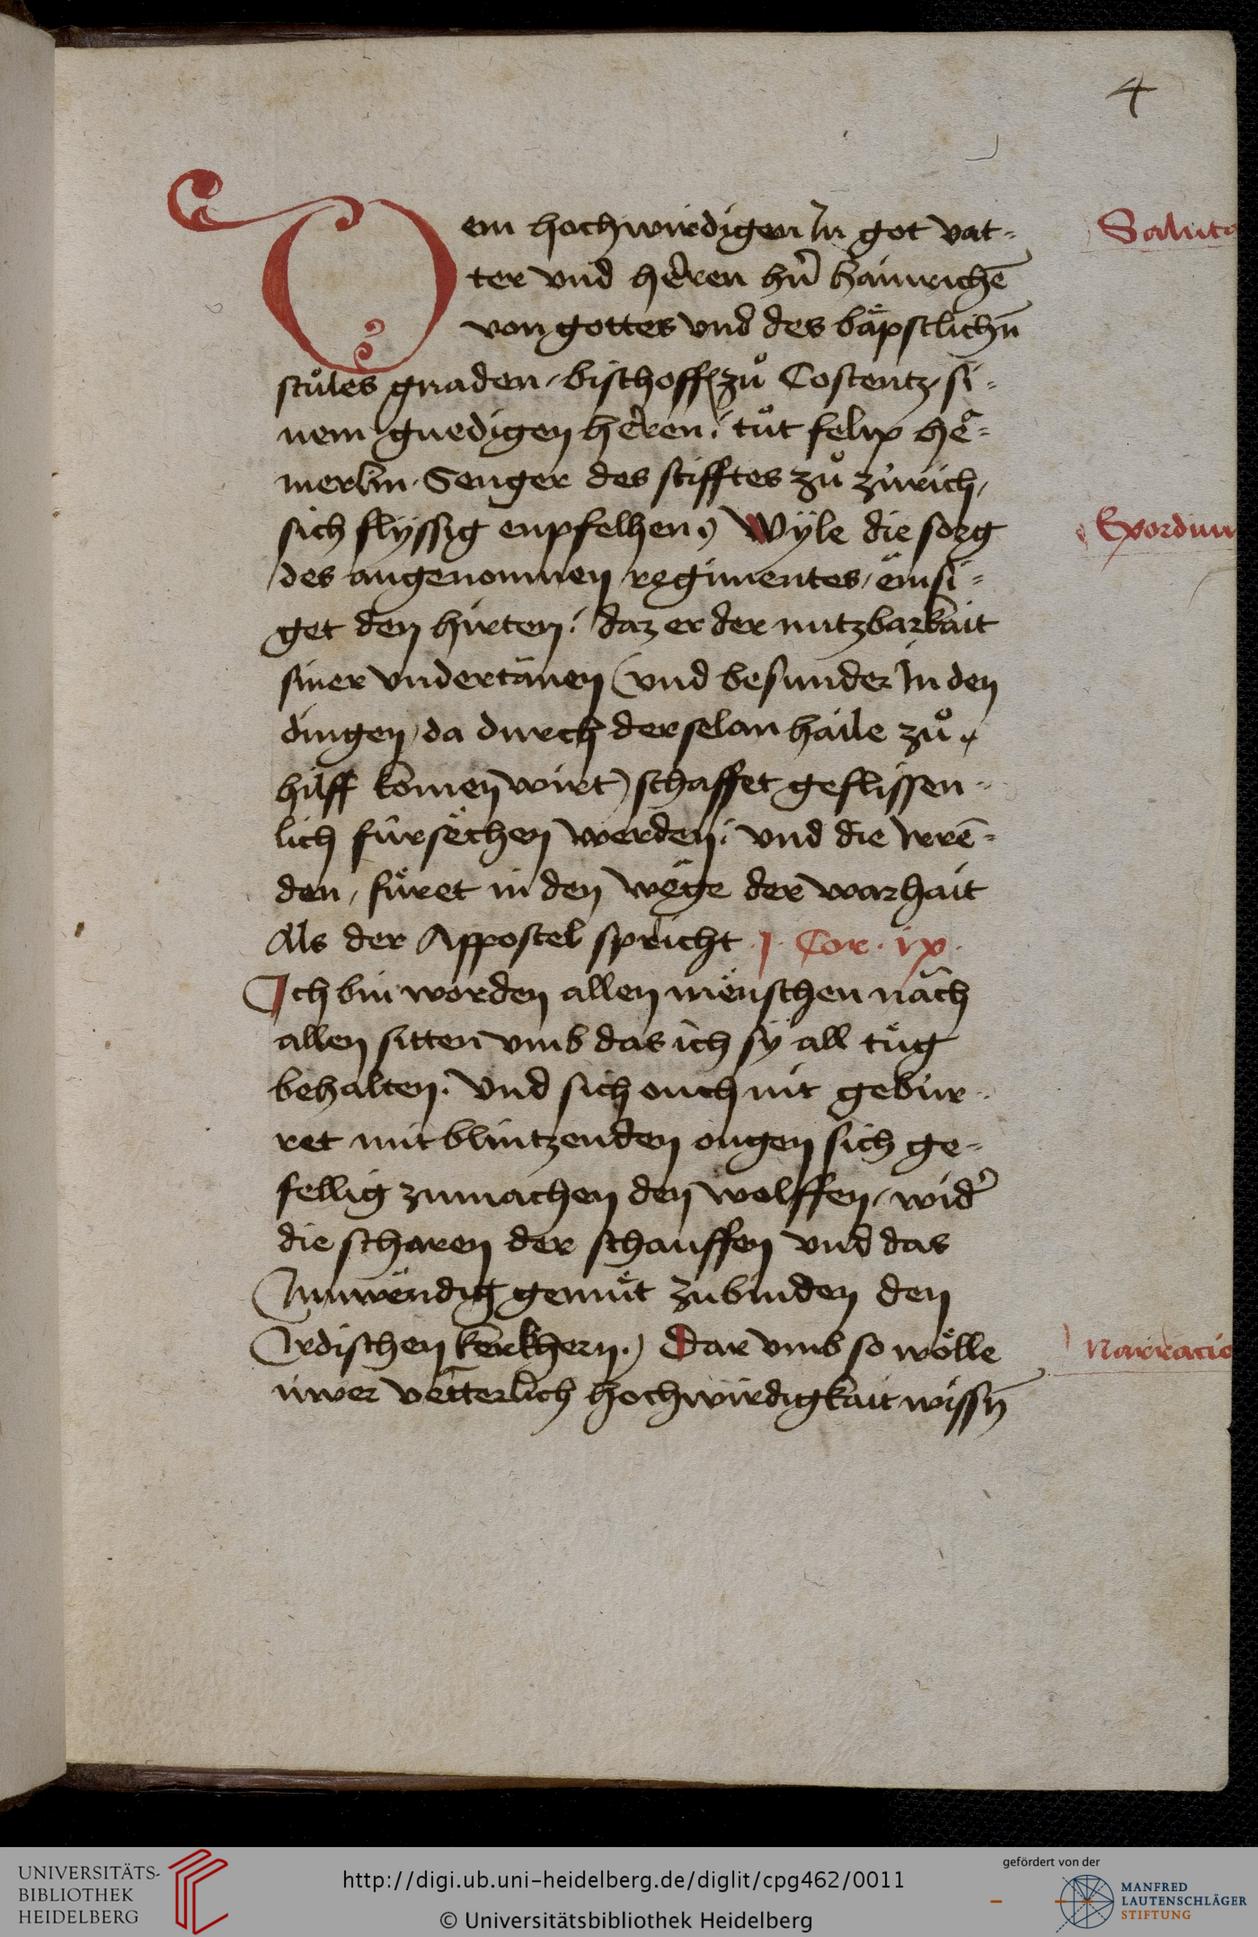 4
Dem hochwirdigen In got vat-
Saluta
ter vnd heͤren hn̄ hainrichē
von gottes vnd des baͤpstlichn̄
stuͦles gnaden / bischoff zuͦ Costentz / si-
nem gnedigen heͤren / tuͦt felix hë-
merlin · Senger des stifftes zuͦ zürich /
sich flyssig enpfelhen ·) Wyle die sorg
Exordium
des angenomnen regimentes / ëmsi-
get den hirten / daz er der nutzbarkait
siner vndertänen (vnd besunder In den
dingen / da durch der selan haile zuͦ
hilff komen wirt) schaffet geflissen-
lich fürsëchen werden / vnd die irrē-
den / fuͤret in den wëge der warhait
Als der Appostel spricht j · Cor · ix ·
Ich bin worden allen mënschen nǎch
allen sitten vmb das ich sy all tuͤg
behalten · Vnd sich ouch nit gebür-
ret mit blintzenden ougen sich ge-
fellig zumachen den wolffen / wid'
die scharen der schauffen vnd das
Inwëndig gemuͤt zubinden den
Irdischen kerkhern ·) Dar vmb so woͤlle
Narracio
üwer vëtterlich hochwirdigkait wissn̄
UNIVERSITÄTS-
BIBLIOTHEK
HEIDELBERG
http://digi.ub.uni-heidelberg.de/diglit/cpg462/0011
© Universitätsbibliothek Heidelberg
gefördert von der
MANFRED
LAUTENSCHLÄGER
STIFTUNG